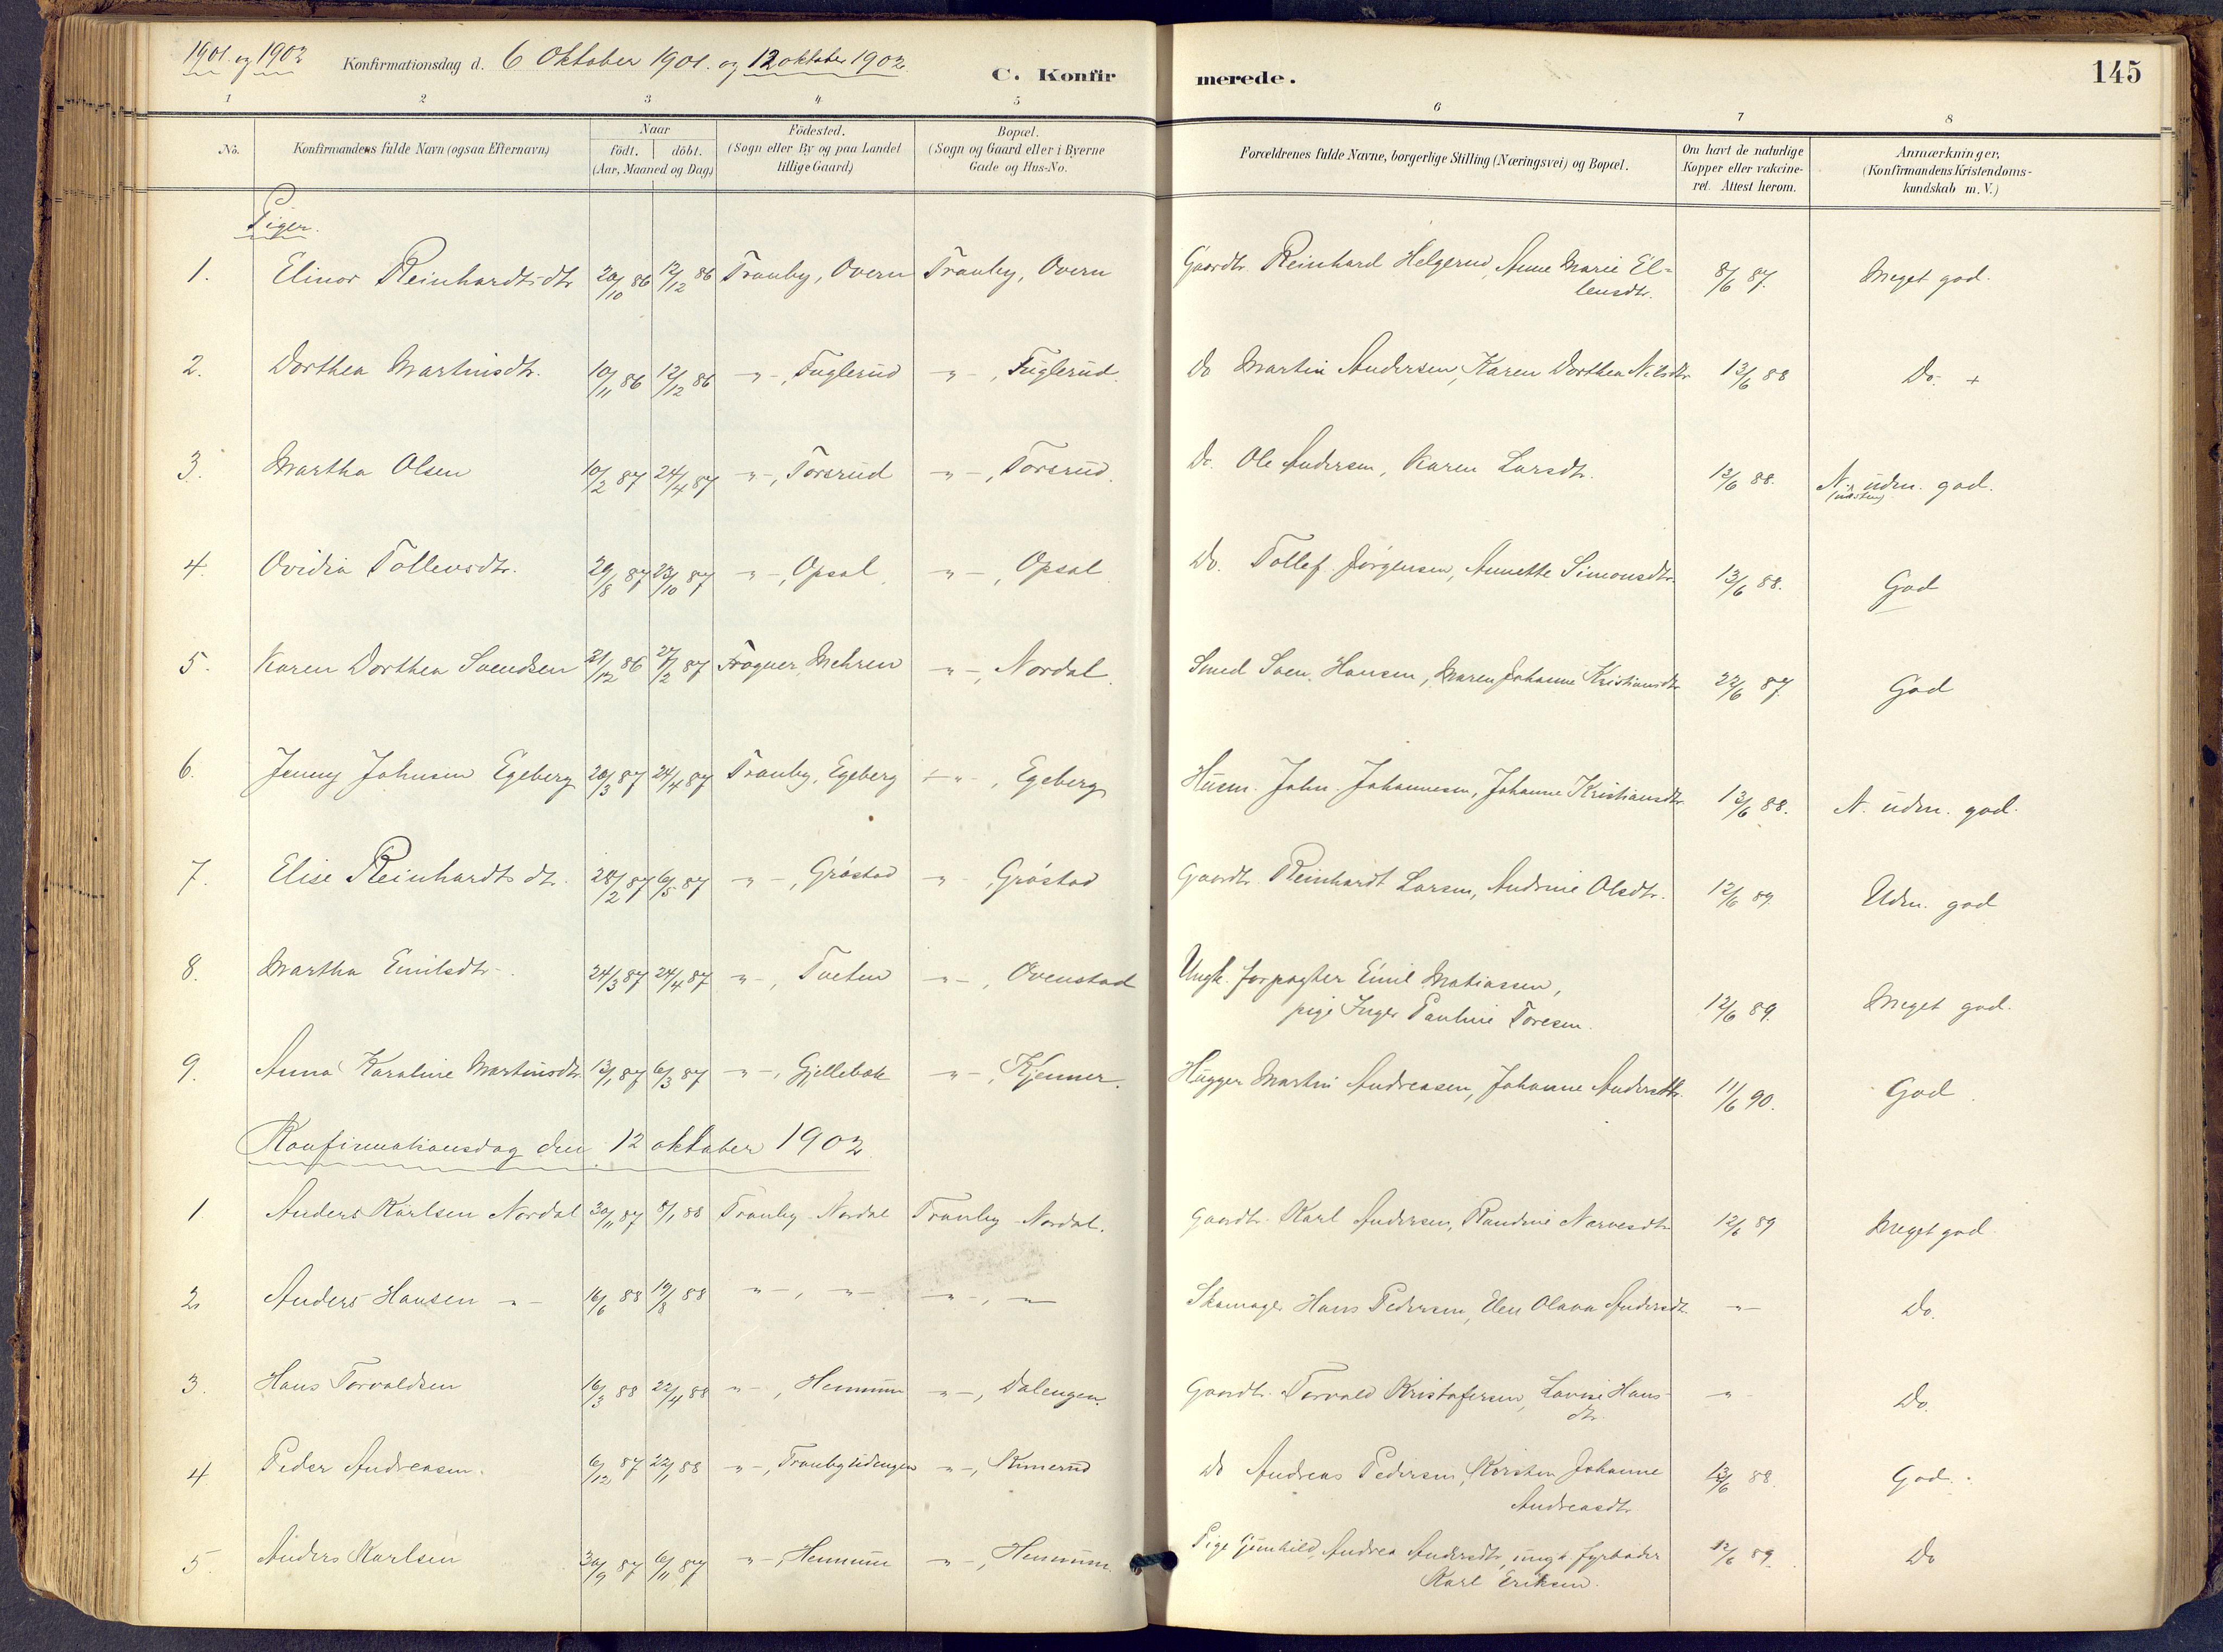 1901. og 1902 Konfirmationsdag d. 6 Oktober 1901. og 12 oktober 1902. C. Konfirmerede. 145
1 2 3 4 5 6 7 8
No. Konfirmandens fulde Navn (ogsaa Efternavn) Naar födt. döbt. (Aar, Maaned og Dag) Födested. (Sogn eller By og paa Landet tillige Gaard) Bopæl. (Sogn og Gaard eller i Byerne Gade og Hus-No. Forældrenes fulde Navne, borgerlige Stilling (Næringsvei) og Bopæl. Om havt de naturlige Kopper eller vakcineret. Attest herom. Anmærkninger, (Konfirmandens Kristendomskundskab m. V.)
Piger.
1. Elinor Reinhardtsdtr 20/10 86 12/12 86 Tranby, Overn Tranby, Overn Gaardbr. Reinhard Helgerud, Anne Marie El=
lensdtr. 8/6 87. Meget god.
2. Dorthea Martinsdtr. 10/11 86 12/12 86 -"-, Fuglerud -"-, Fuglerud. Do Martin Andersen, Karen Dorthea Nilsdtr 13/6 88 Do. +
3. Martha Olsen 10/2 87 24/4 87 -"-, Torsrud -"-, Torsrud. Do. Ole Andersen, Karen Larsdtr. 13/6 88. N. udm. god.
4. Ovidia Tollevsdtr. 29/8 87 23/10 87 -"-, Opsal -"-, Opsal Do. Tollef Jörgensen, Annette Simonsdtr 13/6 88. God
5. Karen Dorthea Svendsen 21/12 86 27/2 87 Frogner, Mehren -"-, Nordal Smed Sven Hansen, Maren Johanne Kristiansdtr 22/6 87. God
6. Jenny Johnsen Egeberg 20/3 87 24/4 87 Tranby, Egeberg -"-, Egeberg Husm. John Johannesen, Johanne Kristiansdtr. 13/6 88. N. udm. god.
7. Elise Reinhardtsdtr. 28/2 87 6/5 87 -"-, Gröstad -"-, Gröstad Gaardbr. Reinhardt Larsen, Andrine Olsdtr. 12/6 89. Udm. god
8. Martha Emilsdtr. 24/3 87 24/4 87 -"-, Tveten -"-, Ovenstad Ungk. forpagter Emil Matiassen,
pige Inger Pauline Toresen. 12/6 89. Meget god.
9. Anna Karoline Martinsdtr. 13/1 87 6/3 87 -"-, Gjellebæk -"-, Kjenner. Hugger Martin Andreasen, Johanne Andersdtr. 11/6 90. God
Konfirmationsdag den 12 oktober 1902.
1 Anders Karlsen Nordal 30/11 87 8/1 88 Tranby Nordal Tranby Nordal. Gaardbr. Karl Andersen, Randine Narvesdtr 12/6 89 Meget god
2. Anders Hansen -"- 16/6 88 19/8 88 -"-, -"- -"-, -"- Skomager Hans Pedersen, Elen Olava Andersdtr. -"- Do.
3. Hans Torvaldsen 16/3 88 22/4 88 -"-, Hennum -"-, Dalengen. Gaardbr. Torvald Kristofersen, Lovise Hans-
dtr. -"- Do.
4 Peder Andreasen. 6/12 87 22/1 88 -"-, -"-, Do Andreas Pedersen, Karsten Johanne
Andreasdtr 13/6 88. God.
5. Anders Karlsen 30/9 87 6/11 87 -"-, Hennum -"-, Hennum. Pige Gunhild Andrea Andersdtr, ungk. fyrbøder
Karl Eriksen. 12/6 89. Do